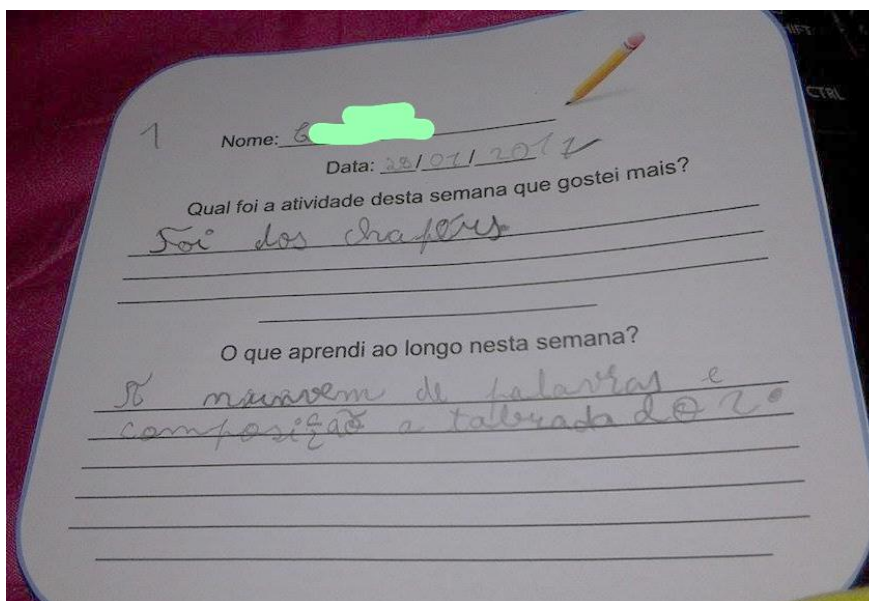 SHIFT
CTRL
1
Nome:
Data: 28/01/2017
Qual foi a atividade desta semana que gostei mais?
Foi dos
O que aprendi ao longo nesta semana?
A de palavras e
composição a tabuada do 2.